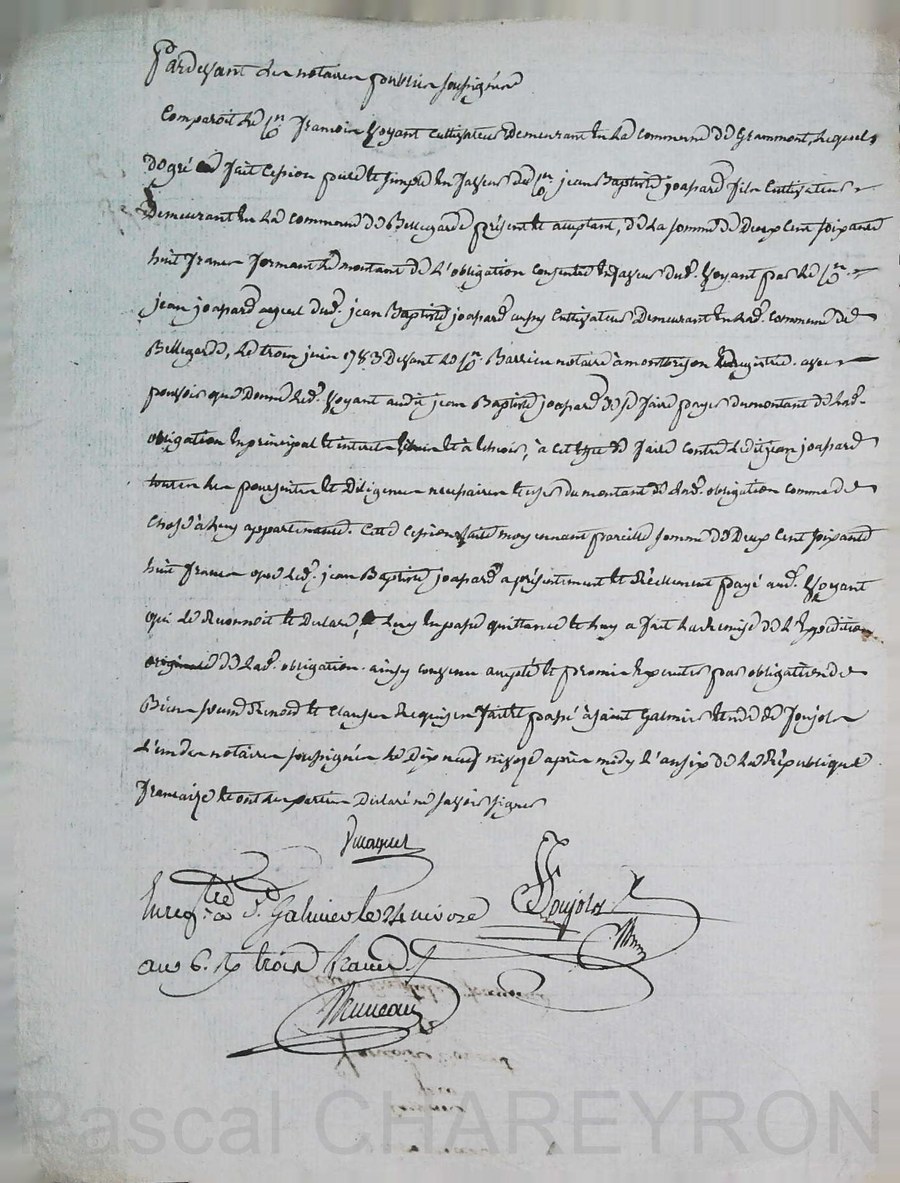 Pardevant les notaires publics soussignés
Comparoit le Cn francois Voyant Cultivateur Demeurant En la commune de Grammont, lequel
De gré a fait Cession pure et simple En faveur du Cn jean Baptiste joassard fils Cultivateur
Demeurant En la commune de Bellegarde présent et acceptant, de la somme de Deux Cent soixante
huit francs formant le montant de l'obligation consentie En faveur dud. Voyant par le Cn
jean joassard ayeul dud. jean Baptiste joassard aussy Cultivateur Demeurant En lad. Commune de
Bellegarde, le trois juin 1783 Devant le Cn Barrieu notaire à montbrison Enregistrée. avec
pouvoir que donne led. Voyant audit jean Baptiste joassard de se faire payer du montant de lad.
obligation En principal et interets Echus et à Echoir, à cet effet de faire contre ledit jean joassard
toutes les poursuites et Diligences necessaires et user du montant de lad. obligation comme de
Chose à luy appartenante. Cette Cession faite moyennant pareille somme de Deux Cent soixante
huit francs que led. jean Baptiste joassard a présentement et Réellement payé aud. Voyant
qui le Reconnoit et Declare, et luy En passe quittance et luy a fait la Remise de l'Expedition
originale de lad. obligation. ainsy convenu accepté et promis Executer par obligation de
Biens soumis Renoncé et Clauses Requises fait et passé à saint Galmier Etude de Joujols
L'un des notaires soussignés le dix neuf nivose après midy l'an six de la République
francaise et ont les parties Declaré ne savoir signer
Joujols
Enregistré à St. Galmier le 24 nivose
an 6. R. trois francs
Pascal CHAREYRON